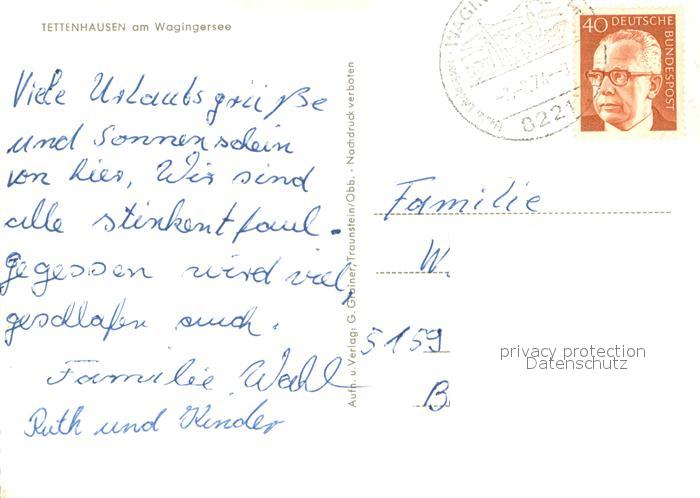 TETTENHAUSEN am Wagingersee
40 DEUTSCHE BUNDESPOST
8221
Viele Urlaubsgrüße
und Sonnenschein
von hier, Wir sind
alle stinkentfaul.
gegessen wird viel,
geschlafen auch.
Familie Wahl
Ruth und Kinder
Aufn. u. Verlag: G. Grainer, Traunstein/Obb. - Nachdruck verboten
Familie
W.
5159
B
privacy protection
Datenschutz